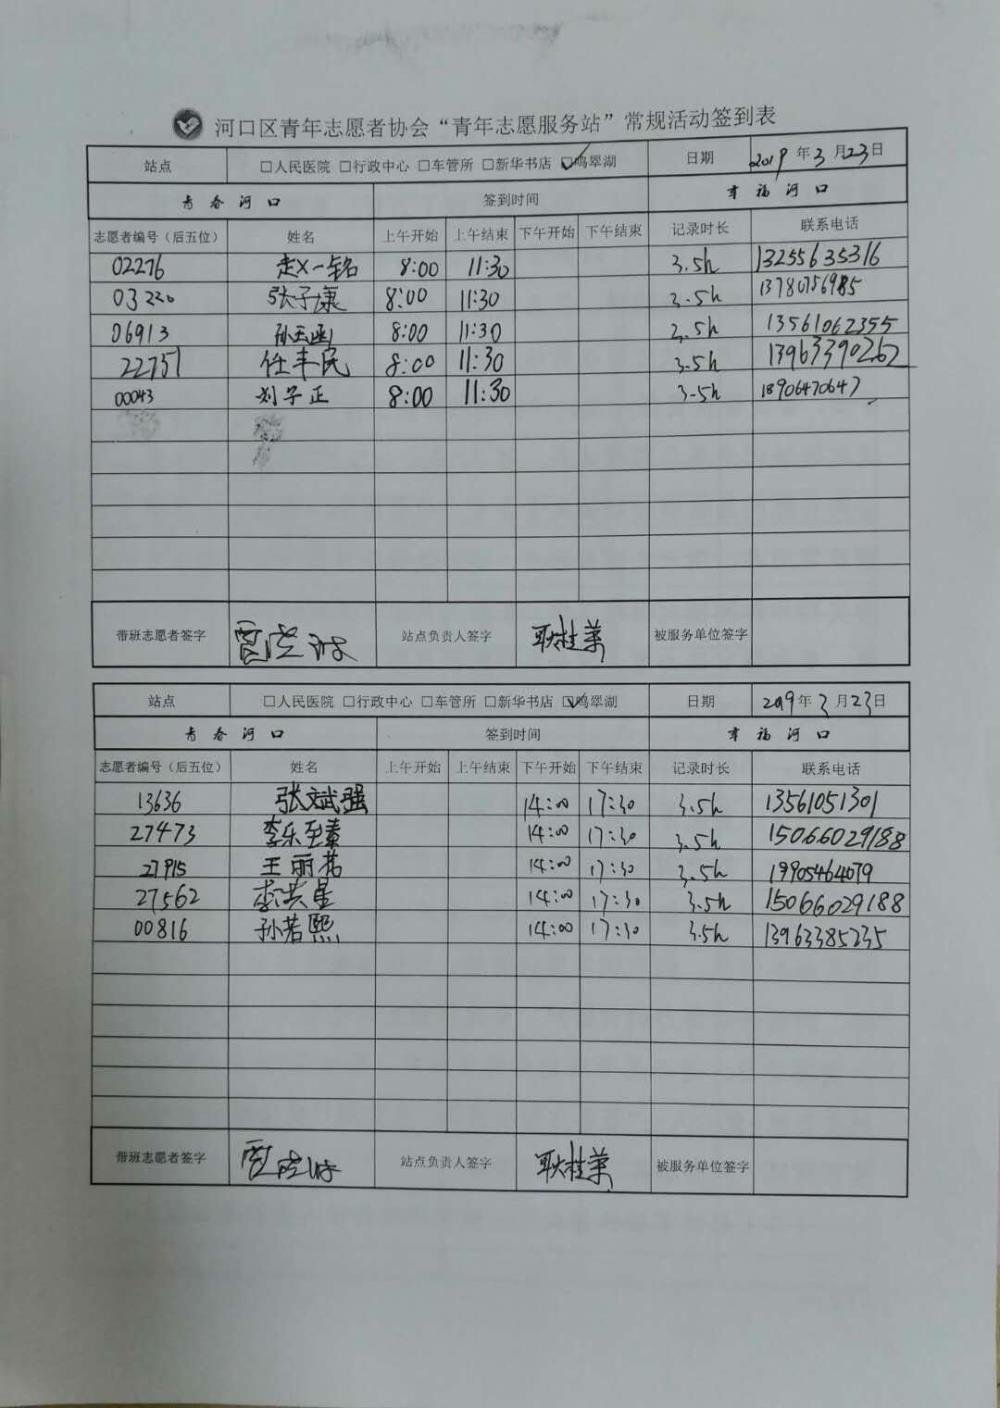 河口区青年志愿者协会“青年志愿服务站”常规活动签到表
站点 □人民医院 □行政中心 □车管所 □新华书店 ☑鸣翠湖 日期 2019年3月23日
青春河口 签到时间 幸福河口
志愿者编号（后五位） 姓名 上午开始 上午结束 下午开始 下午结束 记录时长 联系电话
02276 赵一铭 8:00 11:30 3.5h 13255635316
03220 张子康 8:00 11:30 3.5h 13780756985
06913 孙玉函 8:00 11:30 3.5h 13561062355
22751 任丰民 8:00 11:30 3.5h 13963390262
00043 刘子正 8:00 11:30 3.5h 18906470647
带班志愿者签字 站点负责人签字 耿桂英 被服务单位签字
站点 □人民医院 □行政中心 □车管所 □新华书店 ☑鸣翠湖 日期 2019年3月23日
青春河口 签到时间 幸福河口
志愿者编号（后五位） 姓名 上午开始 上午结束 下午开始 下午结束 记录时长 联系电话
13636 张斌强 14:00 17:30 3.5h 13561051301
27473 李乐至蓁 14:00 17:30 3.5h 15066029188
27915 王丽茗 14:00 17:30 3.5h 19905464079
27562 李洪星 14:00 17:30 3.5h 15066029188
00816 孙若熙 14:00 17:30 3.5h 13963385235
带班志愿者签字 站点负责人签字 耿桂英 被服务单位签字